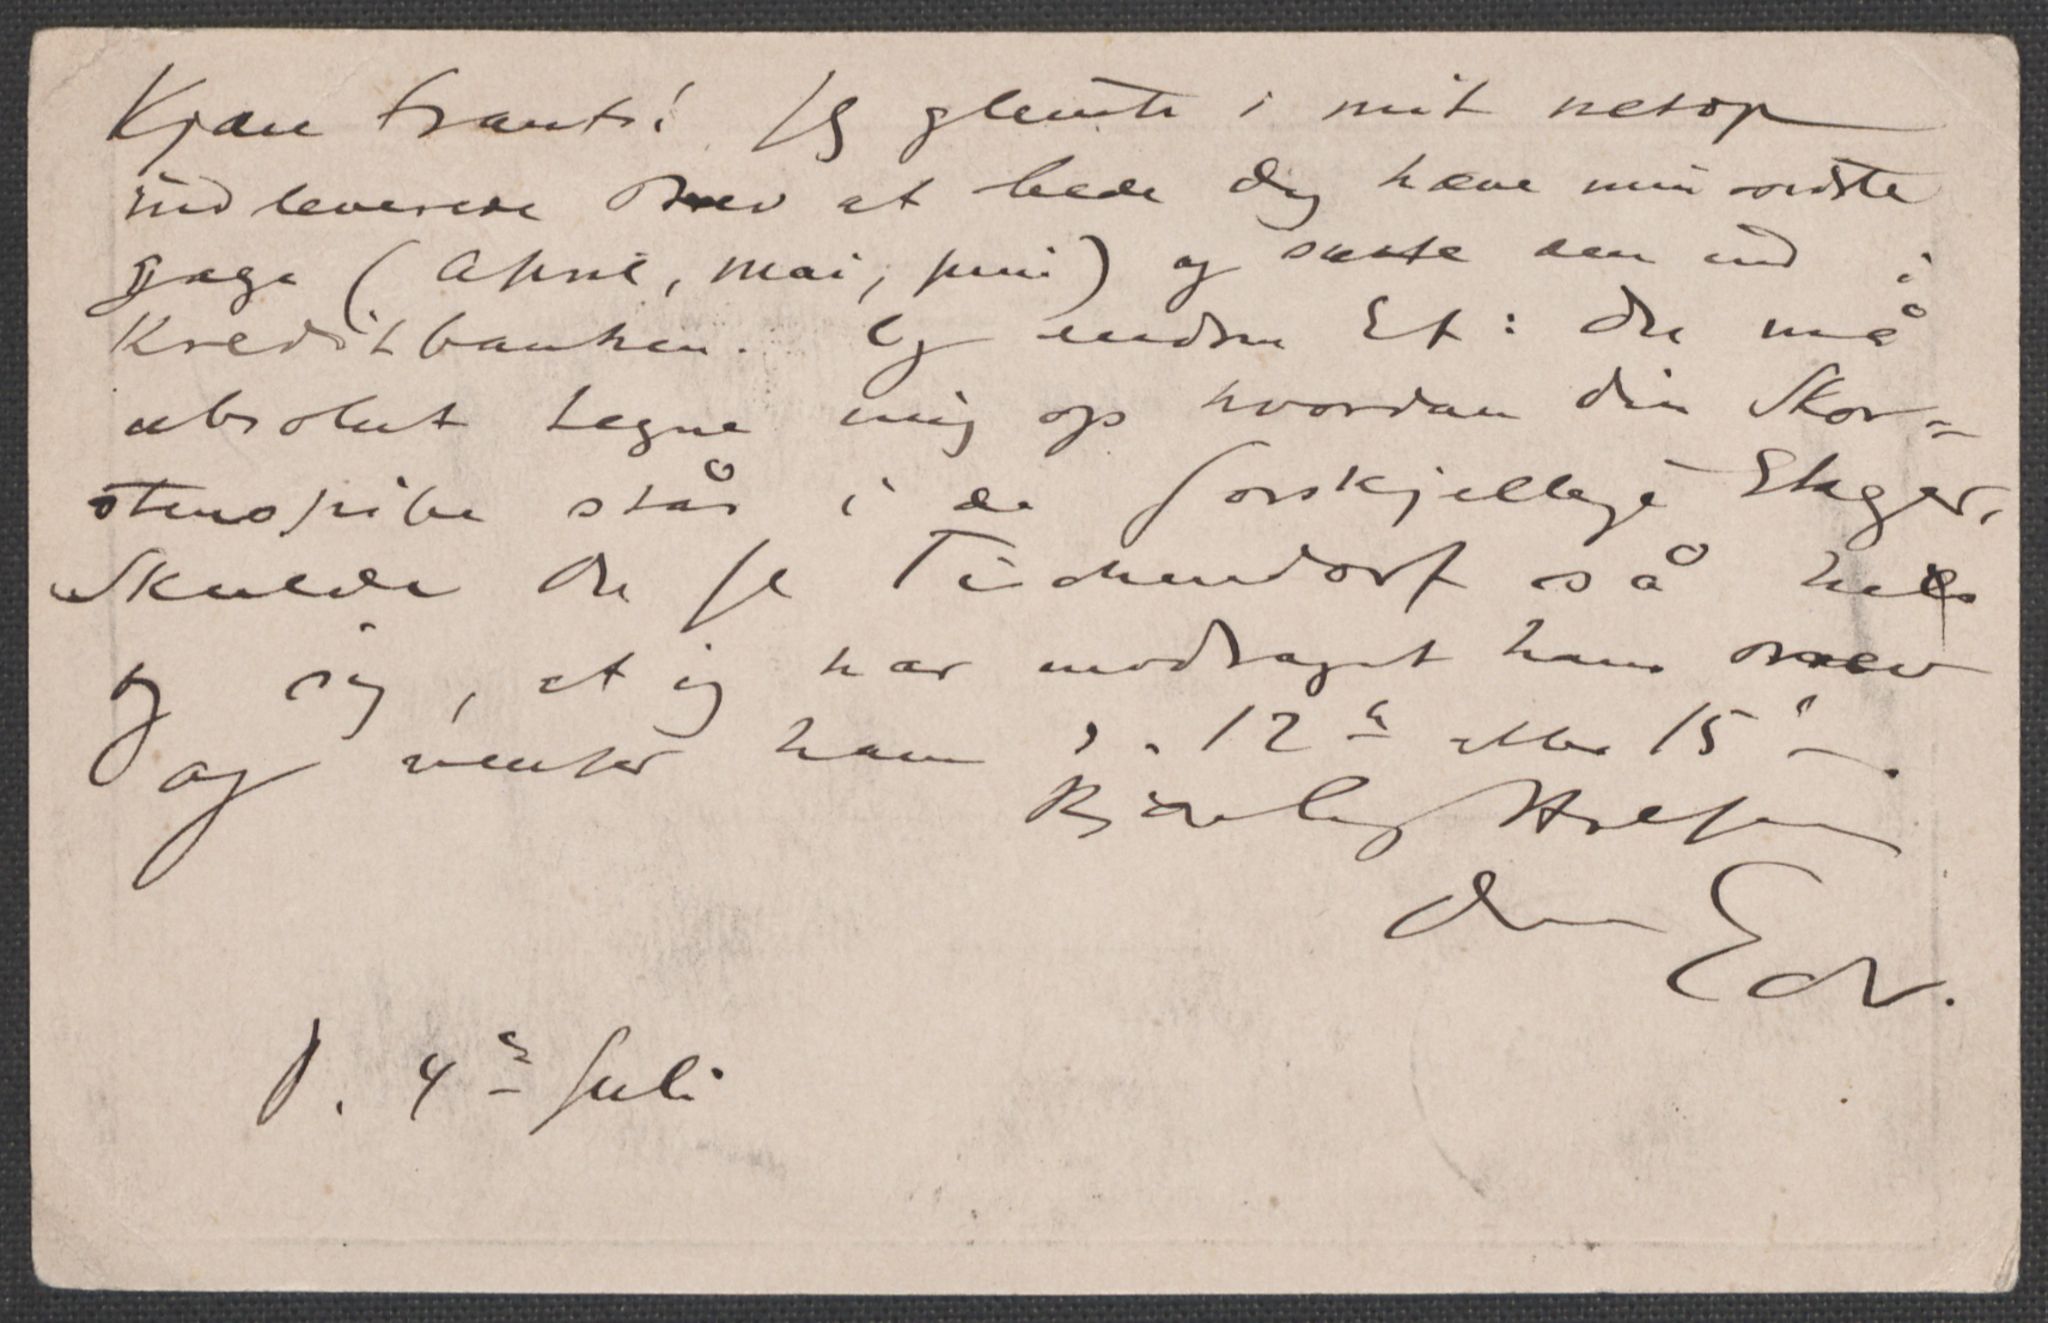 Kjære Frants! Jeg glemte i mit netop
indleverede Brev at bede dig hæve min sidste
gage (April, Mai, juni) og sætte den ind i
Kreditbanken. Og endnu Et: Du må
absolut tegne mig op hvordan din Skor=
stenspibe står i de forskjellige Etager.
Skulde Du se Tischendorf så hils
og sig, at jeg har modtaget hans Brev
og venter ham d. 12te eller 15de.
Kjærlig Hilsen
din Edv.
d. 4de Juli